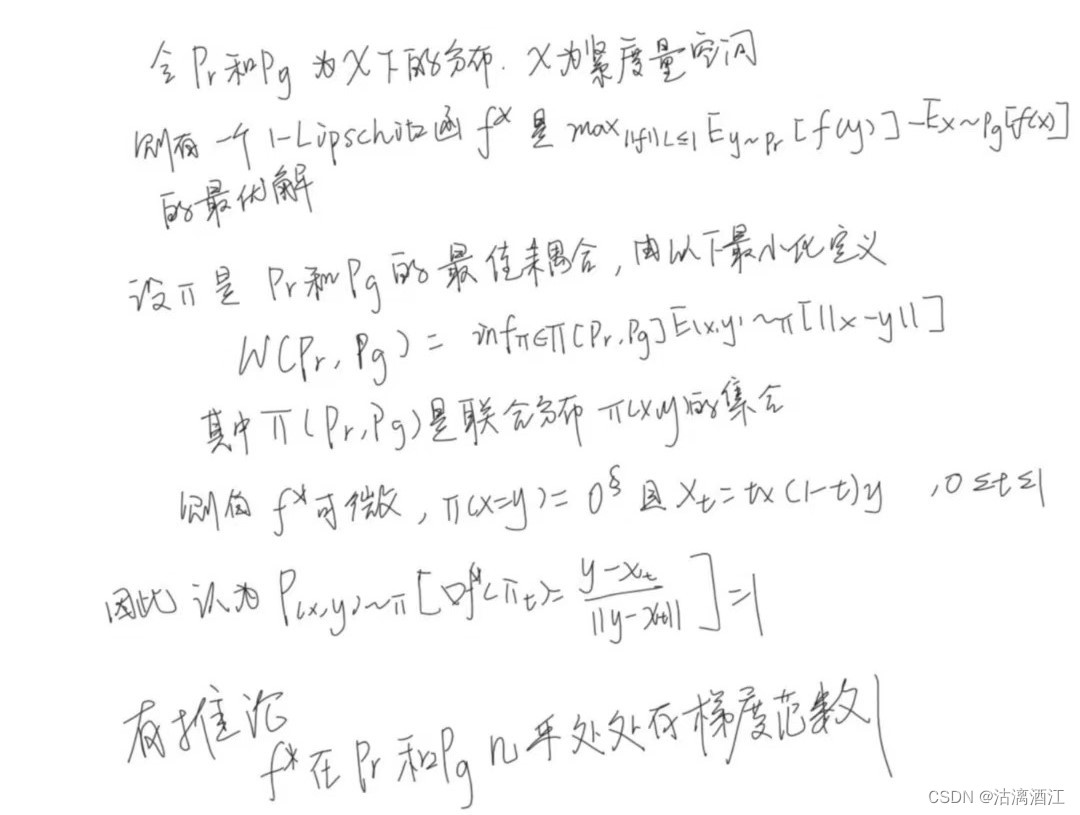 令 Pr和Pg 为X下的分布. X为紧度量空间
则有一个1-Lipschitz函 f* 是 max||f||L≤1 Ey~Pr [f(y)] -Ex~Pg[f(x)]
的最优解
设π是 Pr和Pg的最佳耦合, 由以下最小化定义
W(Pr, Pg) = infπ∈Π[Pr,Pg] E(x,y)~π[||x-y||]
其中 Π(Pr,Pg)是联合分布 π(x,y)的集合
则有 f*可微, π(x=y)=0§ 且 Xt=tx(1-t)y , 0≤t≤1
因此 认为 P(x,y)~π [∇f*(πt)= y-xt / ||y-xt|| ]=1
有推论
f*在 Pr和Pg几乎处处有梯度范数1
CSDN @沽漓酒江